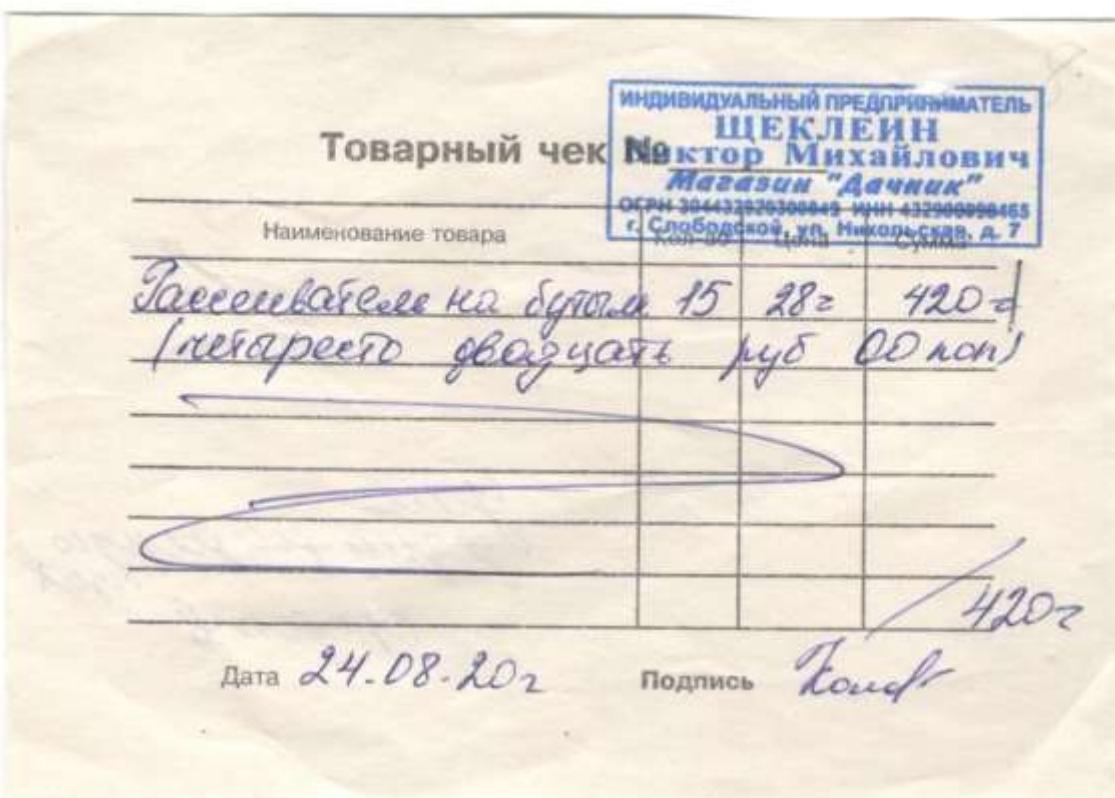 ИНДИВИДУАЛЬНЫЙ ПРЕДПРИНИМАТЕЛЬ
ЩЕКЛЕИН
Виктор Михайлович
Магазин "Дачник"
ИНН 432900098465
г. Слободской, ул. Никольская, д. 7
Товарный чек №
Наименование товара Кол-во Цена Сумма
Рассеиватель на бутыл 15 28= 420=
(четыресто двадцать руб 00 коп)
420=
Дата 24.08.20г Подпись